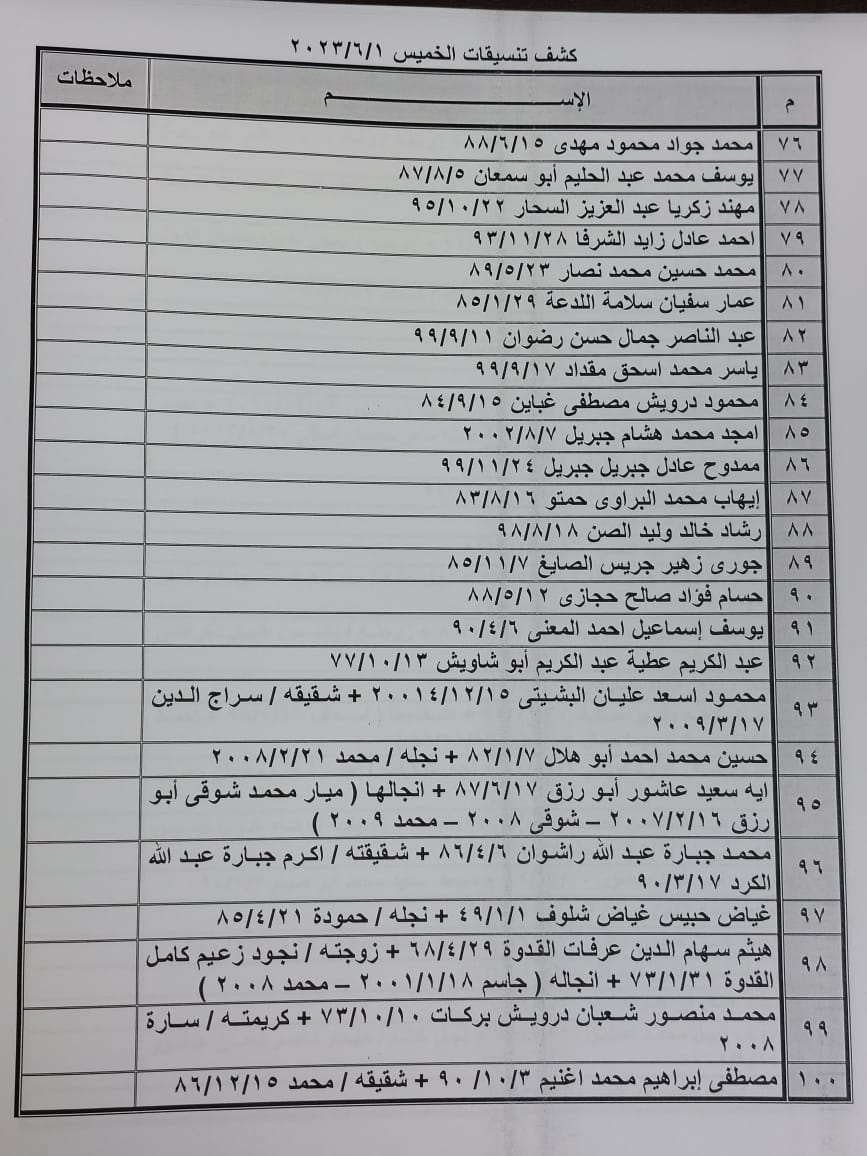 كشف تنسيقات الخميس ٢٠٢٣/٦/١
م الإســـــــــــــم ملاحظات
٧٦ محمد جواد محمود مهدى ٨٨/٦/١٥
٧٧ يوسف محمد عبد الحليم أبو سمعان ٨٧/٨/٥
٧٨ مهند زكريا عبد العزيز السحار ٩٥/١٠/٢٢
٧٩ احمد عادل زايد الشرفا ٩٣/١١/٢٨
٨٠ محمد حسين محمد نصار ٨٩/٥/٢٣
٨١ عمار سفيان سلامة اللدعة ٨٥/١/٢٩
٨٢ عبد الناصر جمال حسن رضوان ٩٩/٩/١١
٨٣ ياسر محمد اسحق مقداد ٩٩/٩/١٧
٨٤ محمود درويش مصطفى غباين ٨٤/٩/١٥
٨٥ امجد محمد هشام جبريل ٢٠٠٢/٨/٧
٨٦ ممدوح عادل جبريل جبريل ٩٩/١١/٢٤
٨٧ إيهاب محمد البراوى حمتو ٨٣/٨/١٦
٨٨ رشاد خالد وليد الصن ٩٨/٨/١٨
٨٩ جورى زهير جريس الصايغ ٨٥/١١/٧
٩٠ حسام فؤاد صالح حجازى ٨٨/٥/١٢
٩١ يوسف إسماعيل احمد المعنى ٩٠/٤/٦
٩٢ عبد الكريم عطية عبد الكريم أبو شاويش ٧٧/١٠/١٣
٩٣ محمود اسعد عليان البشيتى ٢٠٠١٤/١٢/١٥ + شقيقه / سراج الدين
٢٠٠٩/٣/١٧
٩٤ حسين محمد احمد أبو هلال ٨٢/١/٧ + نجله / محمد ٢٠٠٨/٢/٢١
٩٥ ايه سعيد عاشور أبو رزق ٨٧/٦/١٧ + انجالها ( ميار محمد شوقى أبو
رزق ٢٠٠٧/٢/١٦ – شوقى ٢٠٠٨ – محمد ٢٠٠٩ )
٩٦ محمد جبارة عبد الله راشوان ٨٦/٤/٦ + شقيقته / اكرم جبارة عبد الله
الكرد ٩٠/٣/١٧
٩٧ غياض حبيس غياض شلوف ٤٩/١/١ + نجله / حمودة ٨٥/٤/٢١
٩٨ هيثم سهام الدين عرفات القدوة ٦٨/٤/٢٩ + زوجته / نجود زعيم كامل
القدوة ٧٣/١/٣١ + انجاله ( جاسم ٢٠٠١/١/١٨ – محمد ٢٠٠٨ )
٩٩ محمد منصور شعبان درويش بركات ٧٣/١٠/١٠ + كريمته / سارة
٢٠٠٨
١٠٠ مصطفى إبراهيم محمد اغنيم ٩٠/١٠/٣ + شقيقه / محمد ٨٦/١٢/١٥